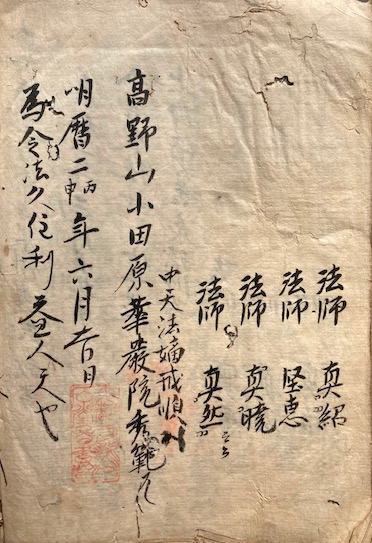 法師 真紹
法師 堅恵
法師 真暁
法師 真然 云云
中天法嫡戒順
高野山小田原華嚴院秀範
明暦二丙申年六月吉日
為令法久住利益人天也